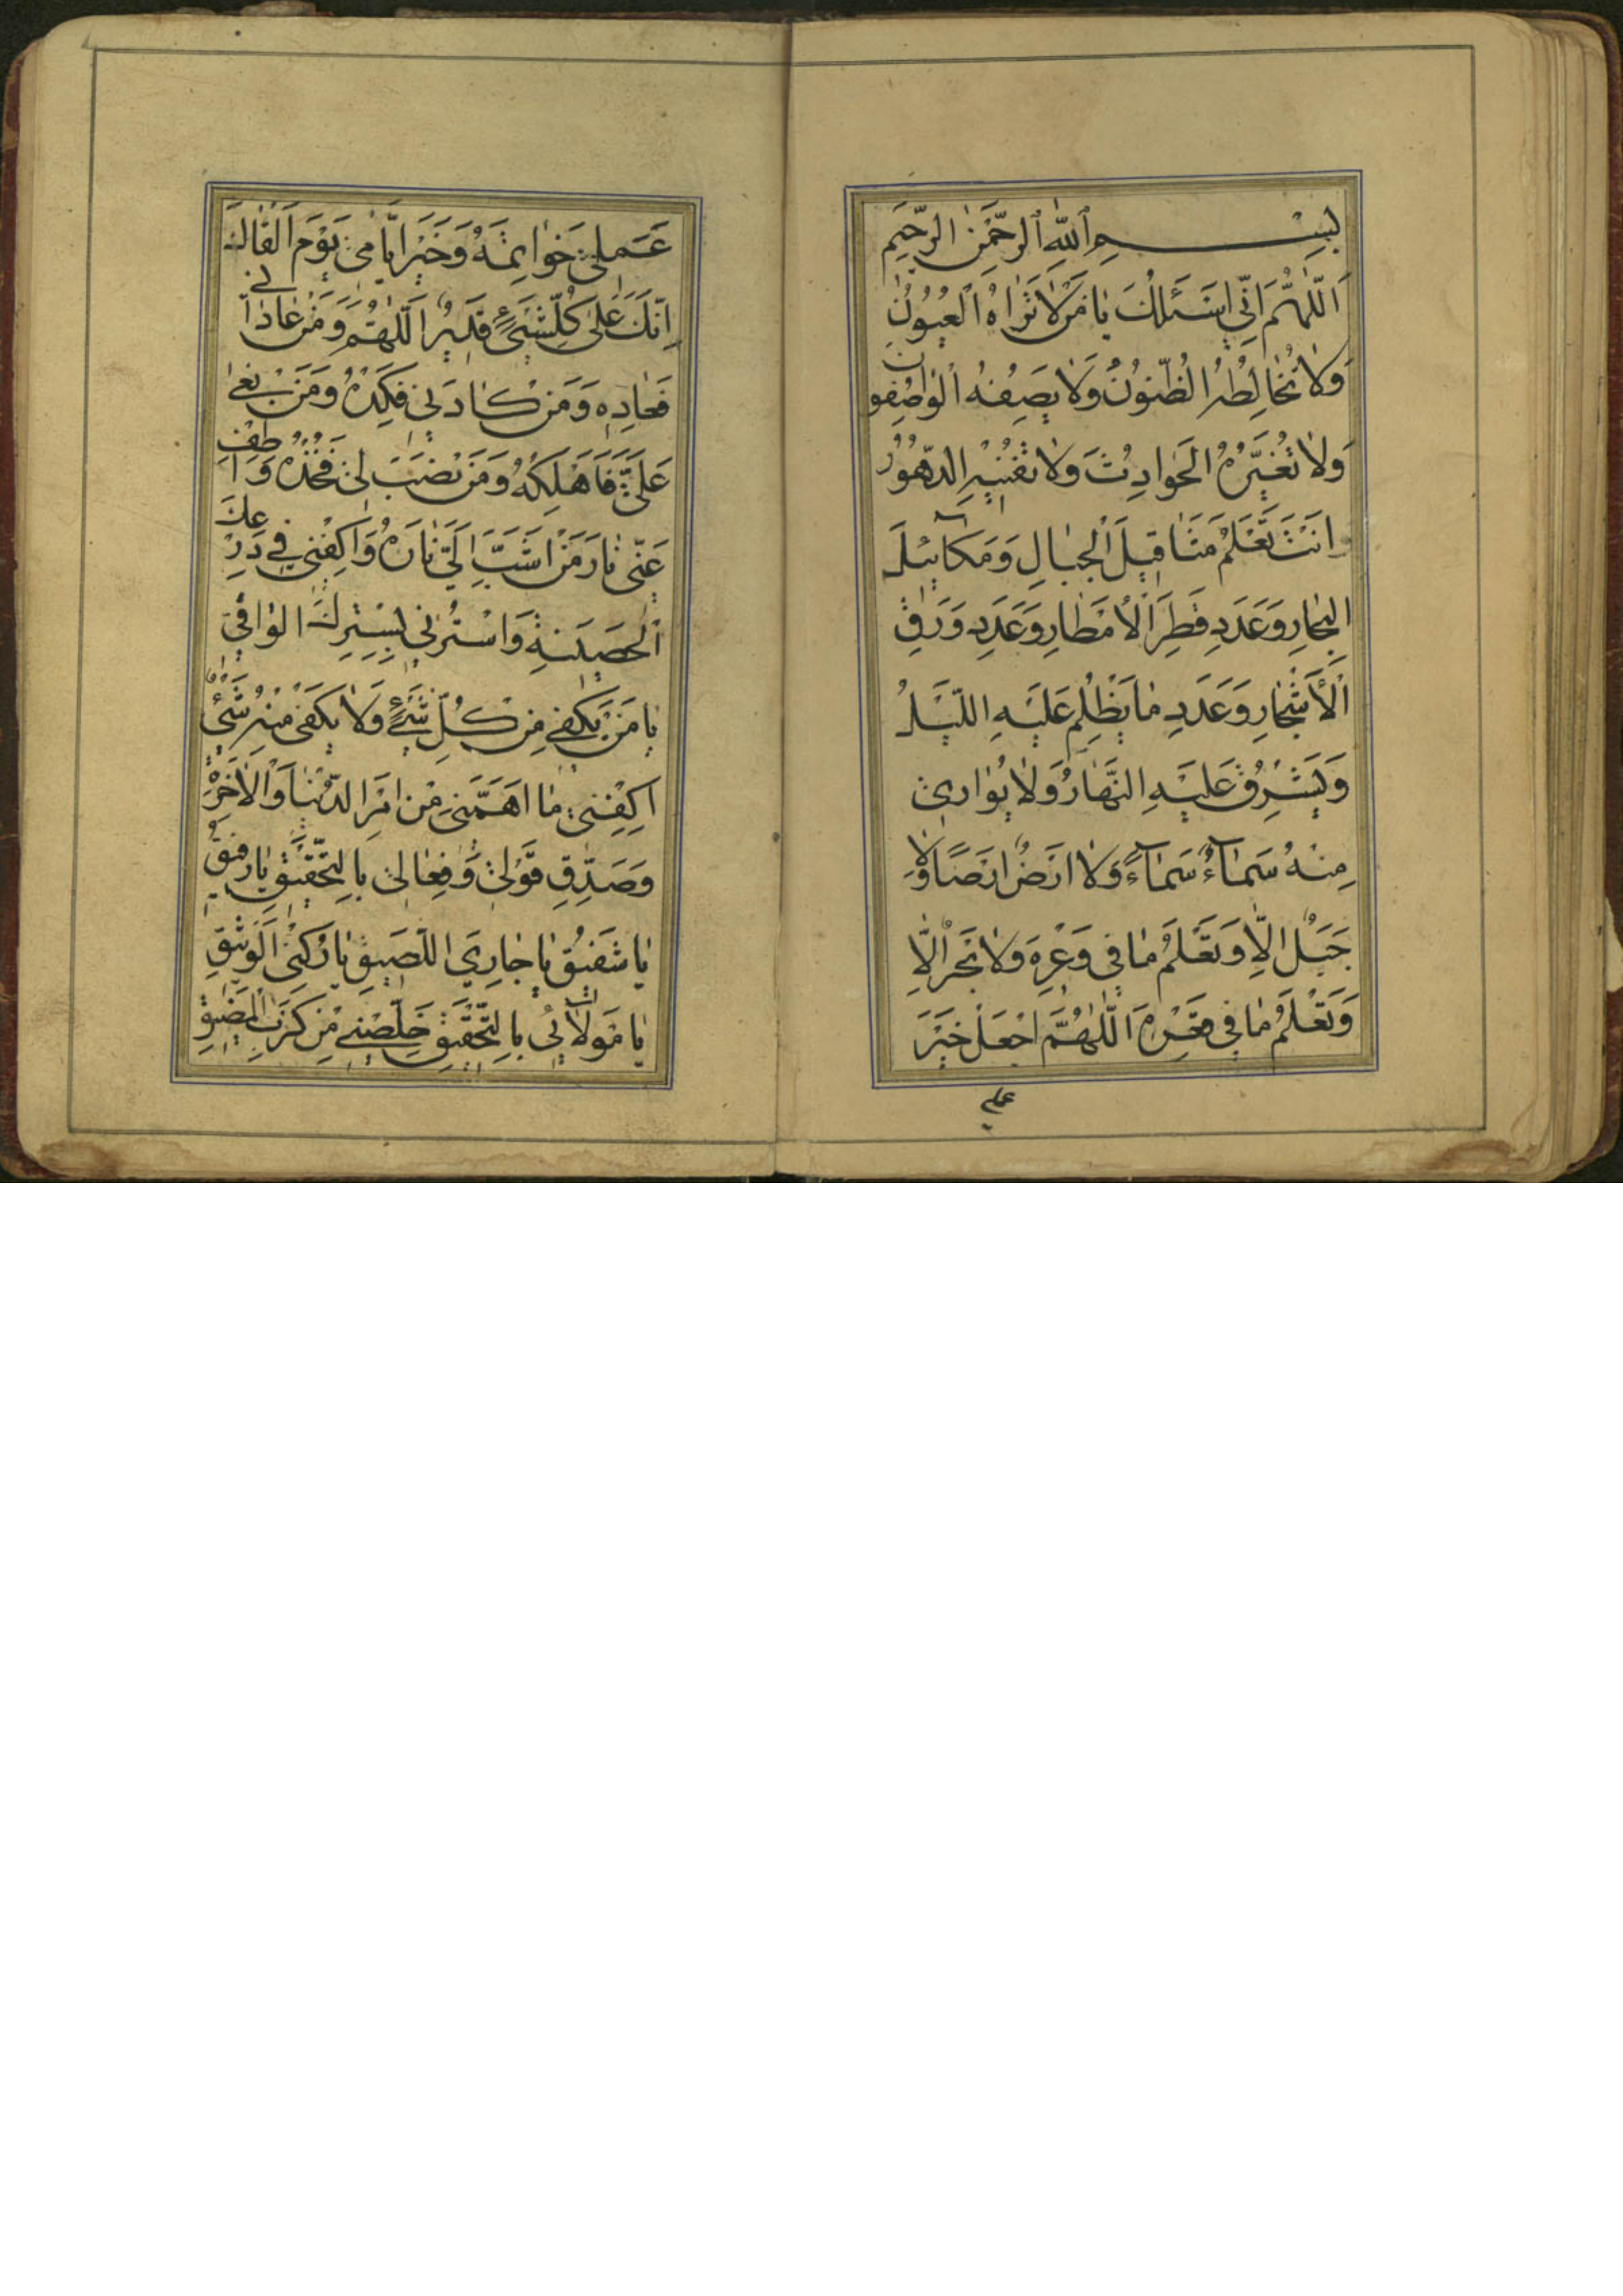 بِسْمِ ٱللّٰهِ ٱلرَّحْمٰنِ الرَّحِيمِ
اَللّٰهُمَّ اِنِّي اَسْئَلُكَ يٰا مَنْ لاٰ تَرٰاهُ ٱلْعُيُونُ
وَلاٰ تُخٰالِطُهُ الظُّنُونُ وَلاٰ يَصِفُهُ الْوٰاصِفُونَ
وَلاٰ تُغَيِّرُهُ الْحَوٰادِثُ وَلاٰ تُفْنِيهِ الدُّهُورُ
اَنْتَ تَعْلَمُ مَثٰاقِيلَ الْجِبٰالِ وَمَكٰائِيلَ
الْبِحٰارِ وَعَدَدِ قَطْرِ الْاَمْطٰارِ وَعَدَدِ وَرَقِ
الْاَشْجٰارِ وَعَدَدِ مٰا يَظْلِمُ عَلَيْهِ اللَّيْلُ
وَيَشْرِقُ عَلَيْهِ النَّهٰارُ وَلاٰ يُوٰارِي
مِنْهُ سَمٰآءٌ سَمٰآءً وَلاٰ اَرْضٌ اَرْضًا وَلاٰ
جَبَلٌ اِلاّٰ وَتَعْلَمُ مٰا فِي وَعْرِهِ وَلاٰ بَحْرٌ اِلاّٰ
وَتَعْلَمُ مٰا فِي قَعْرِهِ اَللّٰهُمَّ اجْعَلْ خَيْرَ
عملي
عَمَلِي خَوٰاتِمَهُ وَخَيْرَ اَيّٰامِي يَوْمَ اَلْقٰاكَ
اِنَّكَ عَلىٰ كُلِّ شَيْءٍ قَدِيرٌ اَللّٰهُمَّ وَمَنْ عٰادٰانِي
فَعٰادِهِ وَمَنْ كٰادَنِي فَكِدْهُ وَمَنْ بَغىٰ
عَلَيَّ فَاَهْلِكْهُ وَمَنْ نَصَبَ لِي فَخُذْهُ وَاَطْفِ
عَنِّي نٰارَ مَنْ اَشَبَّ اِلَيَّ نٰارَهُ وَاكْفِنِي فِي دِرْعِكَ
الْحَصِينَةِ وَاسْتُرْنِي بِسِتْرِكَ الْوٰاقِي
يٰا مَنْ يَكْفِي مِنْ كُلِّ شَيْءٍ وَلاٰ يَكْفِي مِنْهُ شَيْءٌ
اِكْفِنِي مٰا اَهَمَّنِي مِنْ اَمْرِ الدُّنْيٰا وَالْاٰخِرَةِ
وَصَدِّقْ قَوْلِي وَفِعٰالِي بِالتَّحْقِيقِ يٰا رَفِيقُ
يٰا شَفِيقُ يٰا جٰارِيَ اللَّصِيقِ يٰا رُكْنِيَ الْوَثِيقِ
يٰا مَوْلاٰئِي بِالتَّحْقِيقِ خَلِّصْنِي مِنْ كَرْبِ الْمَضِيقِ